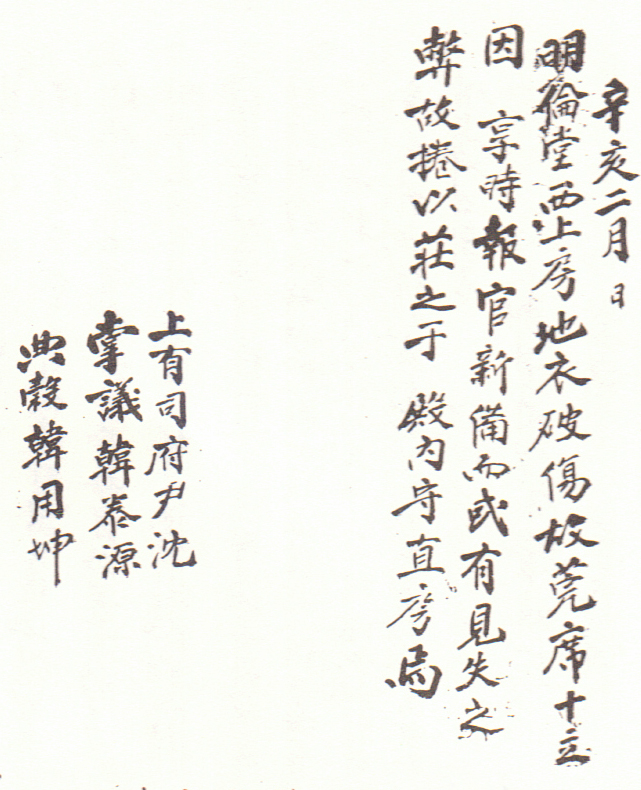 辛亥二月 日
明倫堂西上房地衣破傷故莞席十立
因 享時報官新備而或有見失之
弊故捲以莊之于 殿內守直房焉
上有司府尹沈
掌議韓泰源
典穀韓用坤